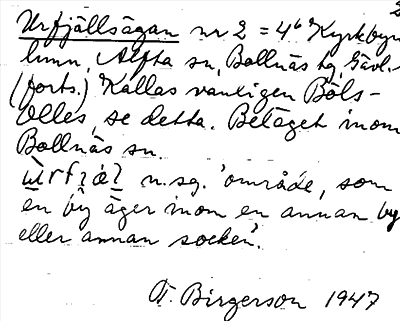 2
Urfjällsägan nr 2 = 4⁶⁹ Kyrkbyn
lunn, Alfta sn, Bollnäs tg, Gävl.
(forts.) Kallas vanligen Böls-
Olles, se detta. Beläget inom
Bollnäs sn.
n.sg. 'område, som
en by äger inom en annan by
eller annan socken'.
T. Birgerson 1947